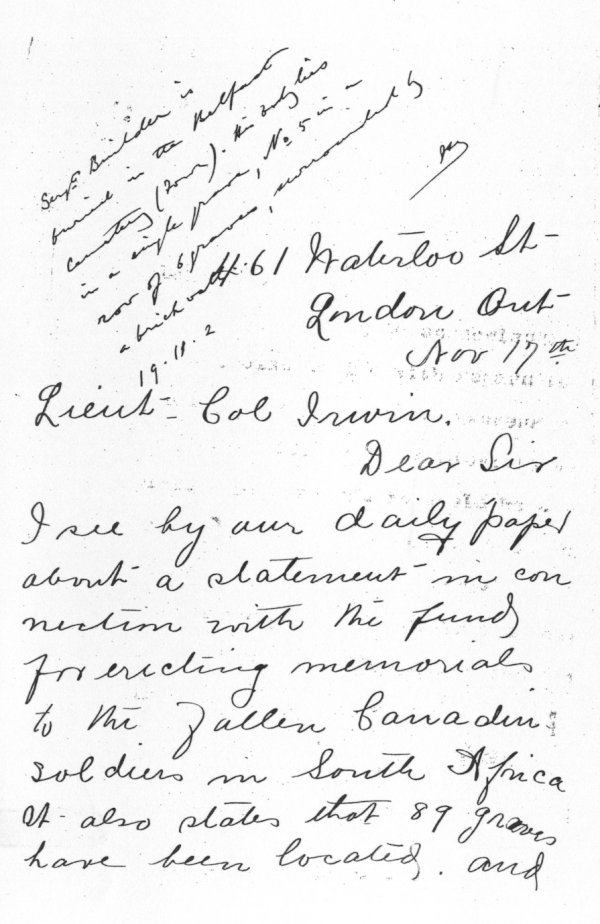 Sergt Builder is
buried in the Belfast
cemetery (Town). His body lies
in a single grave, No 5 in a
row of 6 graves, surrounded by
a brick wall
19.11.2
461 Waterloo St
London Ont
Nov 17th
Lieut Col Irwin.
Dear Sir
I see by our daily paper
about a statement in con
nection with the fund
for erecting memorials
to the fallen Canadin
soldiers in South Africa
It also states that 89 graves
have been located. and